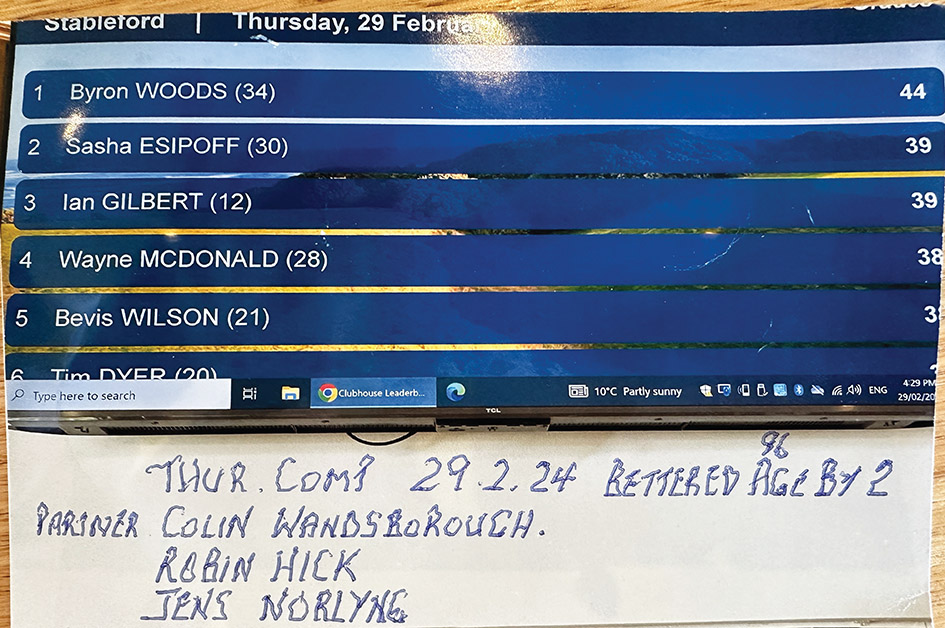 Stableford | Thursday, 29 Februa
1 Byron WOODS (34) 44
2 Sasha ESIPOFF (30) 39
3 Ian GILBERT (12) 39
4 Wayne MCDONALD (28) 38
5 Bevis WILSON (21) 3
6 Tim DYER (20)
Type here to search Clubhouse Leaderb... 10°C Partly sunny ENG 4:29 PM
29/02/20
TCL
96
THUR. COMP 29.2.24 BETTERED AGE BY 2
PARTNER COLIN WANDSBOROUGH.
ROBIN HICK
JENS NORLYNG